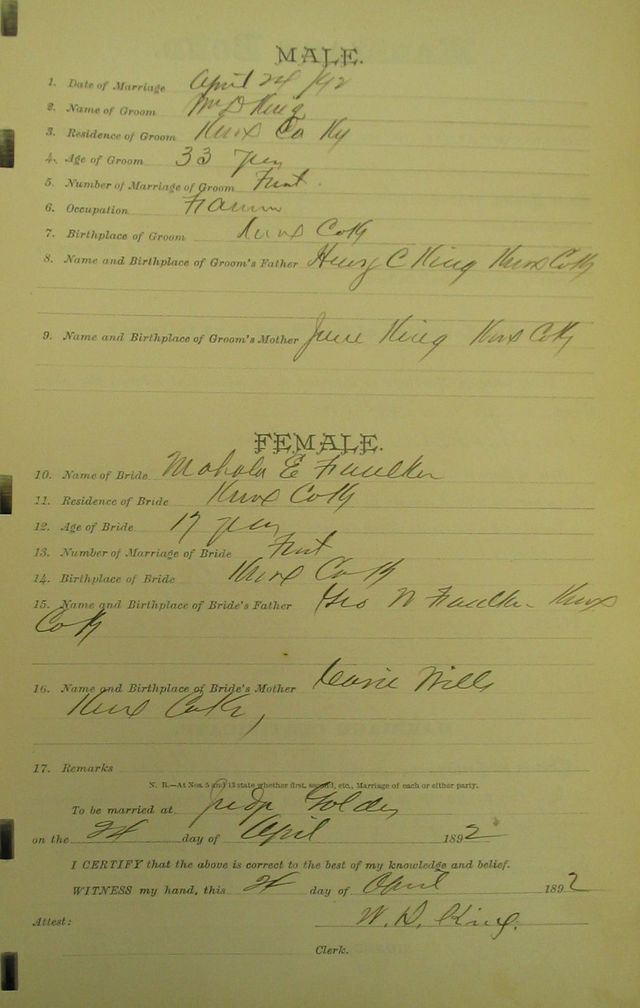 MALE.
1. Date of Marriage April 24 /92
2. Name of Groom Wm D King
3. Residence of Groom Knox Co Ky
4. Age of Groom 33 years
5. Number of Marriage of Groom First.
6. Occupation Farmer
7. Birthplace of Groom Knox Co Ky
8. Name and Birthplace of Groom's Father Henry C King Knox Co Ky
9. Name and Birthplace of Groom's Mother Jane King Knox Co Ky
FEMALE.
10. Name of Bride Mahala E Faulkner
11. Residence of Bride Knox Co Ky
12. Age of Bride 17 years
13. Number of Marriage of Bride First
14. Birthplace of Bride Knox Co Ky
15. Name and Birthplace of Bride's Father Geo W Faulkner Knox
Co Ky
16. Name and Birthplace of Bride's Mother Wills
Knox Co Ky,
17. Remarks
N. B.—At Nos. 5 and 13 state whether first, second, etc., Marriage of each or either party.
To be married at
on the 24 day of April 1892
I CERTIFY that the above is correct to the best of my knowledge and belief.
WITNESS my hand, this 24 day of April 1892
Attest: W. D. King.
Clerk.